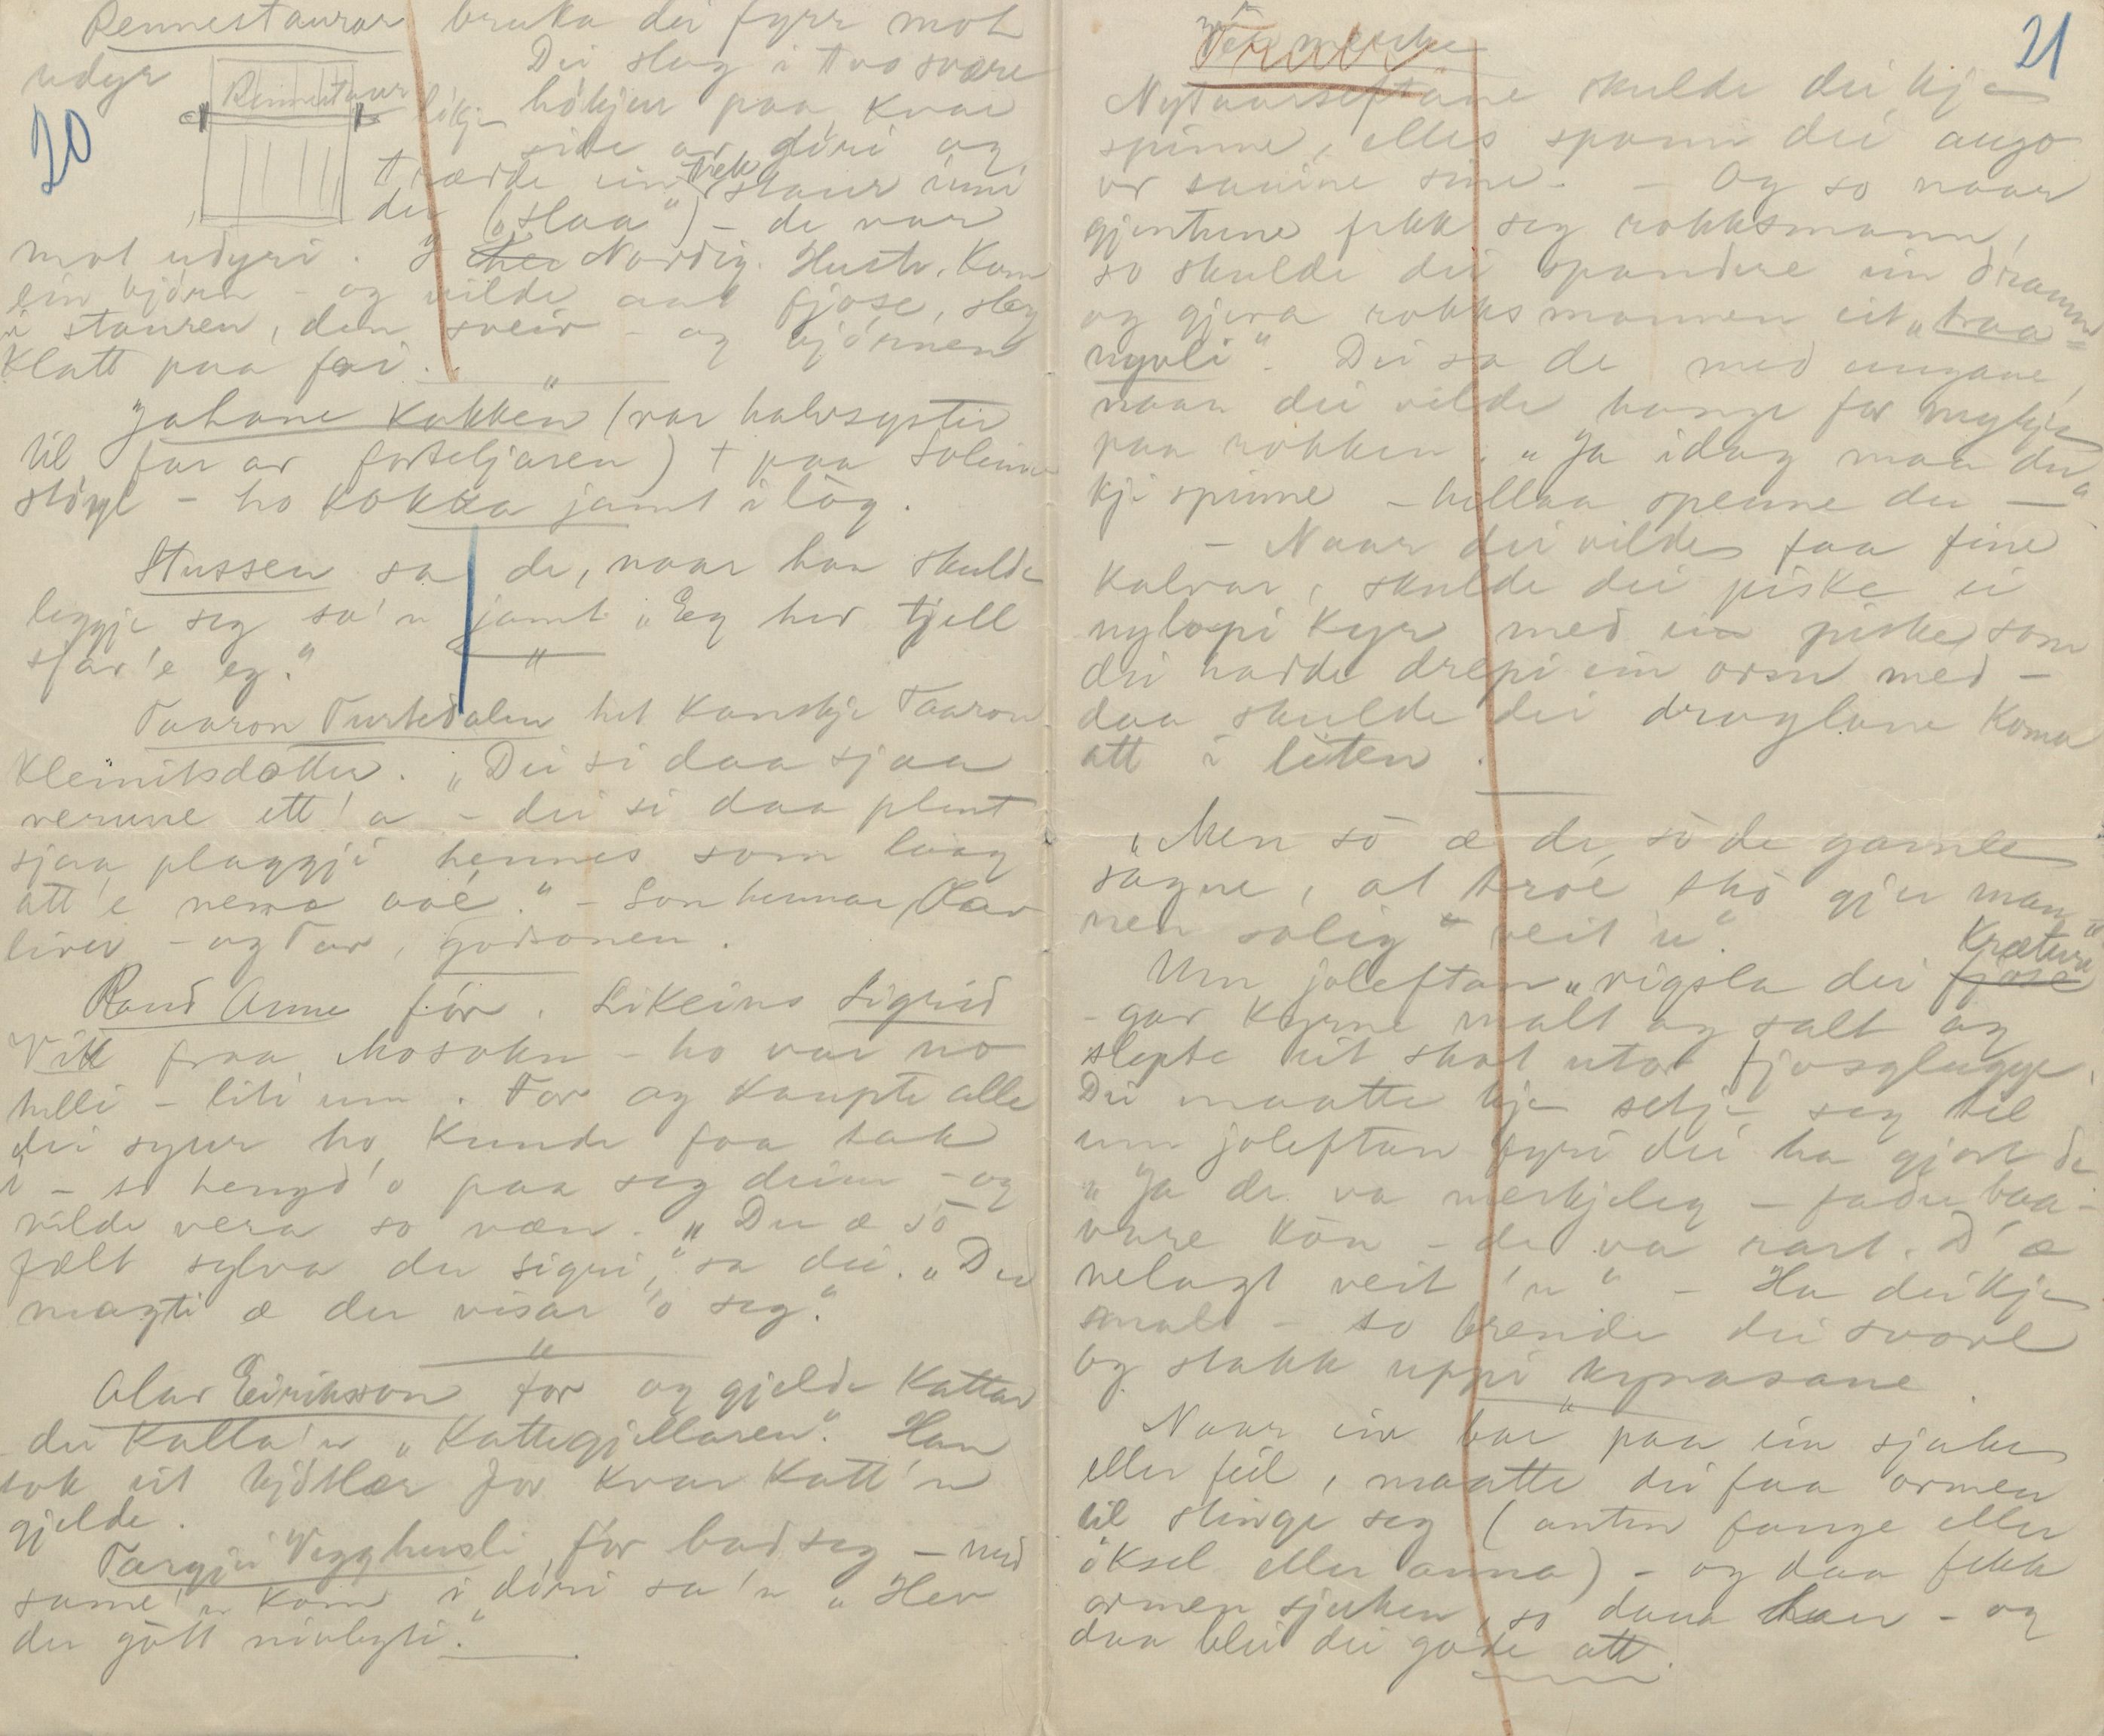 20
Rennestaurar bruka dei fyrr mot
udyr Dei slog i tvo svære
Rennestaur
likje hókjur paa kvar
side av dóri og
trædde ein trek staur inni
dei („slaa") - de var
mot udyri. I Nordig. Hustv. kom
ein bjórn - og vilde aat fjose, slog
i stauren, den sveiv - og bjórnen
klatt paa fai.
"
Johane Kokken (var halvsyster
til far av forteljaren) † paa Soleim
stóyl - ho kokka jamt i lóg.
Stussen sa de, naar han skulde
leggje seg sa'n jamt „Eg her tjell
sfar'e eg."
"
Taaron Turkedalen het kanskje Taaron
Kleimitsdotter. „Dei si daa sjaa
verune ett'a - dei si daa plent
sjaa plaggji hennes som laag
att'e nerra aaé." - Son hennar Olav
liver - og Tor, godsonen.
Rand Anne fór. Likeins Sigrid
Vik fraa Mosokn - ho var no
helli - liti um. For og kaupte alle
dei syur ho kunde faa tak
i - so hengd'o paa seg deim - og
vilde vera so væn. „Du æ só
fælt sylva du Sigri," sa dei. „Den
magti æ der visar 'ó seg."
"
Olav Eirikson for og gjelde kattar
- dei kalla'n „Kattegjellaren". Han
tok eit kjótlær for kvar katt 'n
gjelde.
Targjei Vegghusli fór bad seg - med
same'n kom i dóri sa'n „Hev
du gótt nivlegti."
21
Vermerke
Truer
Nyaarseftane skulde dei kje
spinne, elles spann dei augo
or sauine sine. - Og so naar
gjentune fekk seg rokksmann,
so skulde dei spandere ein dramm
og gjera rokksmannen eit „traa-
nyvli". Dei sa de med ungane,
naar dei vilde hange for mykje
paa rokken. „Ja idag maa du
kji spinne - hellaa spenne du —"
- Naar dei vilde faa fine
kalvar, skulde dei piske ei
nylopi kyr med ein piske som
dei hadde drepi ein orm med -
daa skulde dei draglane koma
att i leten.
„Men só æ de, só de gamle
sagne, at troé skó gjer man-
nen salig" veit'u".
Um joleftan „vigsla dei fjose kræture"
- gav kyrne malt og salt og
slepte eit skot utor fjosglugge.
Dei maatte kje setje seg til
um joleftan fyri dei ha gjort de
„Ja de va merkjeleg - fader baa-
vare kón - de va rart. D'æ
velagt veit 'n" - Ha dei kje
smalt - so brende dei svovl
og stakk uppi kynasane.
"
Naar ein bar paa ein sjuke
eller feil, maatte dei faa ormen
til stinge seg (anten fange eller
óksel eller anna) - og daa fekk
ormen sjuken, so daua han - og
daa blei dei gode att.